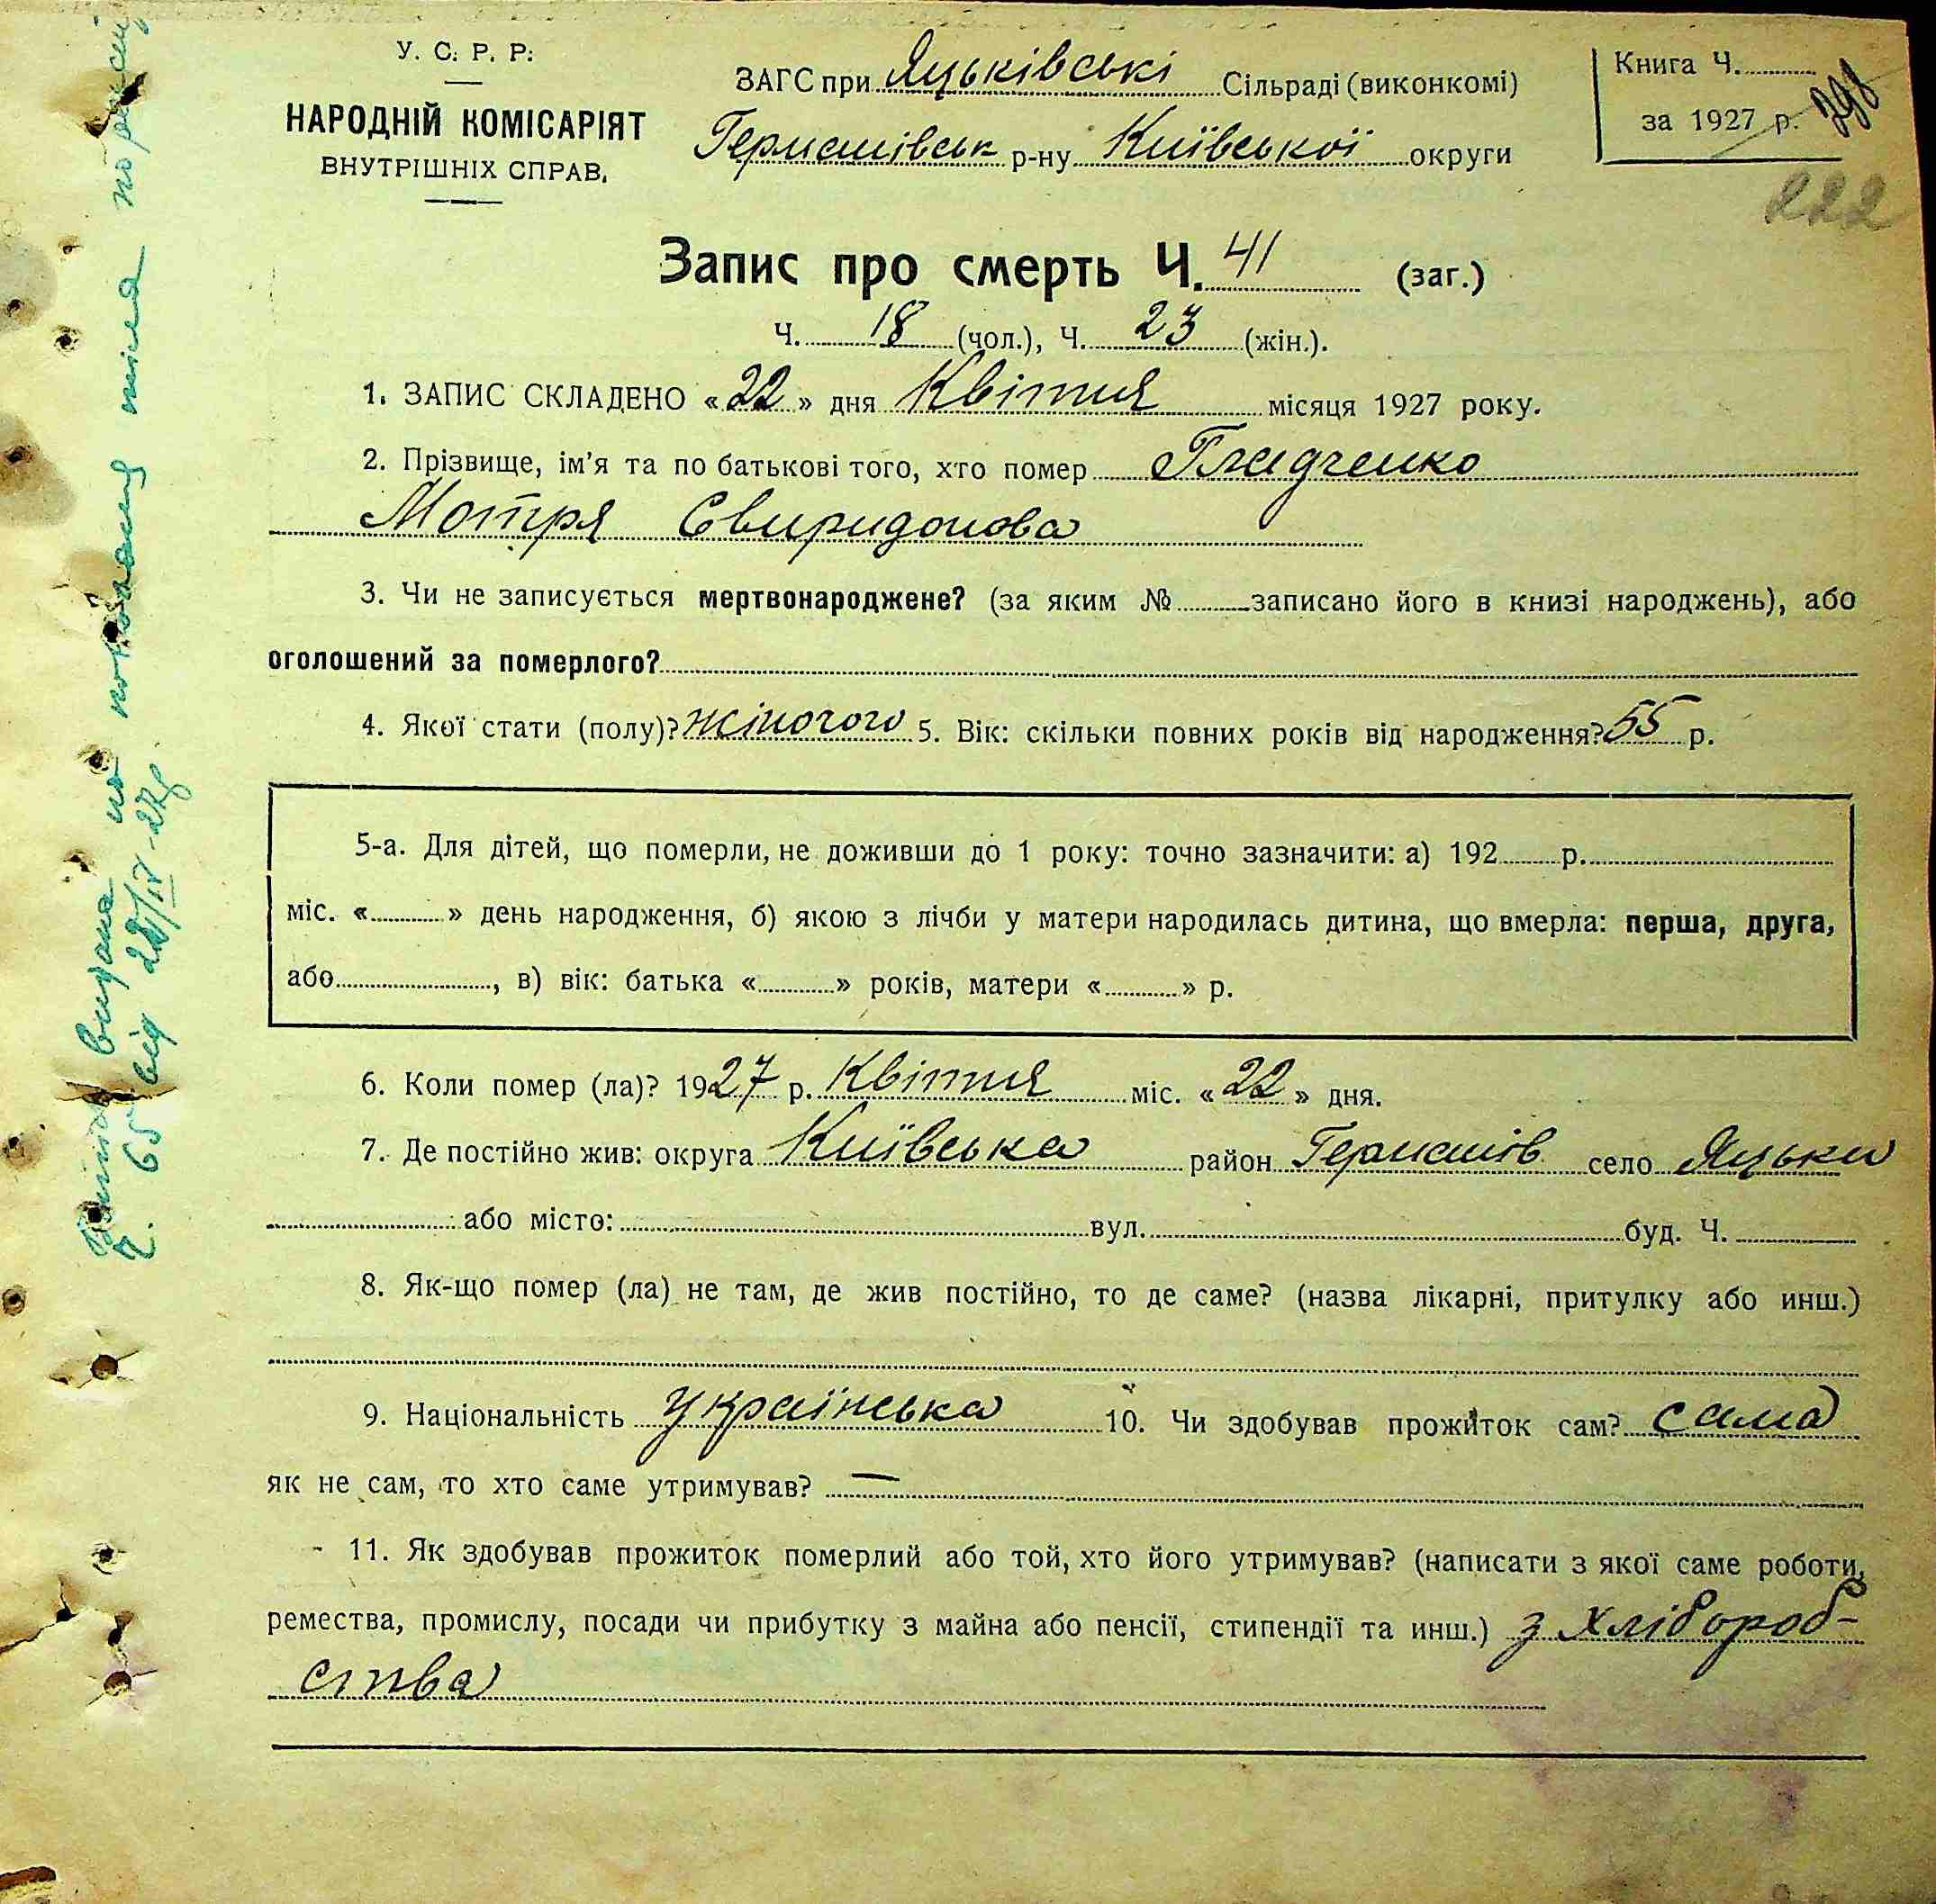 У. С. Р. Р.
НАРОДНІЙ КОМІСАРІЯТ
ВНУТРІШНІХ СПРАВ.
ЗАГС при Яцьківські Сільраді (виконкомі)
Германівськ р-ну Київської округи
Книга Ч.
за 1927 р.
222
Запис про смерть Ч. 41 (заг.)
Ч. 18 (чол.), Ч. 23 (жін.).
1. ЗАПИС СКЛАДЕНО «22» дня Квітня місяця 1927 року.
2. Прізвище, ім'я та по батькові того, хто помер Гладченко
Мотря Свиридонова
3. Чи не записується мертвонароджене? (за яким № записано його в книзі народжень), або
оголошений за померлого?
4. Якої стати (полу)? жіночого 5. Вік: скільки повних років від народження? 55 р.
5-а. Для дітей, що померли, не доживши до 1 року: точно зазначити: а) 192 р.
міс. « » день народження, б) якою з лічби у матери народилась дитина, що вмерла: перша, друга,
або , в) вік: батька « » років, матери « » р.
6. Коли помер (ла)? 1927 р. Квітня міс. «22» дня.
7. Де постійно жив: округа Київська район Германів село Яцьки
або місто: вул. буд. Ч.
8. Як-що помер (ла) не там, де жив постійно, то де саме? (назва лікарні, притулку або инш.)
9. Національність Українська 10. Чи здобував прожиток сам? сама
як не сам, то хто саме утримував? —
11. Як здобував прожиток померлий або той, хто його утримував? (написати з якої саме роботи,
ремества, промислу, посади чи прибутку з майна або пенсії, стипендії та инш.) з хлібороб-
ства
видана на поховання тіла
Ч. 65 від 22/IV-27р